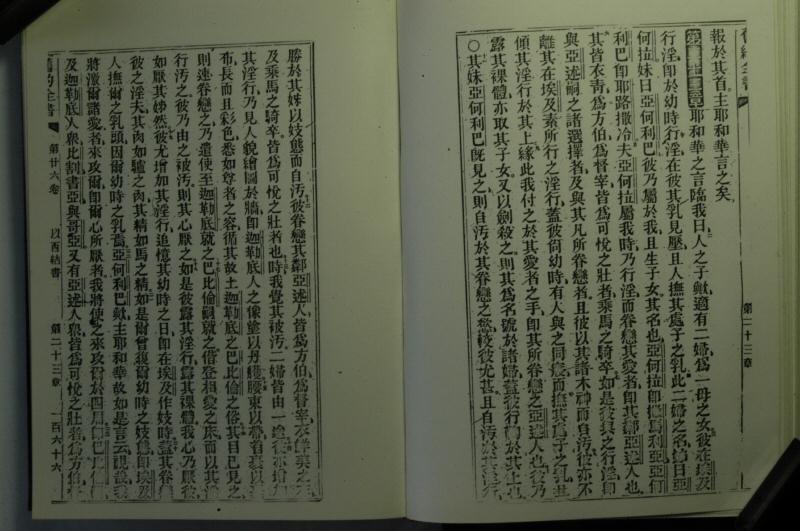 舊約全書
第二十三章
報於其首。主耶和華言之矣。
耶和華之言臨我曰人之子歟適有二婦爲一母之女彼在埃及
行淫卽於幼時行淫在彼其乳見壓且人撫其處子之乳此二婦之名姊曰亞
何拉妹曰亞何利巴彼乃屬於我且生子女其名也亞何拉卽撒馬利亞亞何
利巴卽耶路撒冷夫亞何拉屬我時乃行淫而眷戀其愛者卽其鄰亞述人也
其皆衣青爲方伯爲督宰皆爲可悅之壯者乘馬之騎卒如是彼與之行淫卽
與亞述嗣之諸選擇者及與其凡所眷戀者且彼以其諸木神而自汚彼亦不
離其在埃及素所行之淫行蓋彼尙幼時有人與之同寢而撫其處子之乳並
傾其淫行於其上緣此我付之於其愛者之手卽其所眷戀之亞述人也彼乃
露其裸體亦取其子女又以劍殺之則其爲名號於諸婦蓋彼行罰於其上也
○其妹亞何利巴旣見之則自汚於其眷戀之慾較彼尤甚且自汚
勝於其姊以妓態而自汚彼眷戀其鄰亞述人皆爲方伯爲督宰衣
及乘馬之騎卒皆爲可悅之壯者也時我覺其被汚二婦皆由一途彼亦增加
其淫行乃見人貌繪圖於牆卽迦勒底人之像塗以丹雘腰束以帶首裹以
布長而且彩色悉如尊者之容循其故土迦勒底之巴比倫之俗其目已見之
則速眷戀之乃遣使至迦勒底就之巴比倫嗣就之偕登相愛之床而以其淫
行汚之彼乃由之被汚則其心厭之如是彼露其淫行露其裸體我心乃厭彼
如厭其姊然彼尤增加其淫行追憶其幼時之日卽在埃及作妓時蓋其眷戀
彼之淫夫其肉如驢之肉其精如馬之精如是爾曾復爾幼時之妓態卽埃及
人撫爾之乳頭因爾幼時之乳焉亞何利巴歟主耶和華故如是言云視哉我
將激爾諸愛者來攻爾卽爾心所厭者我將使之來攻爾於四周卽巴比倫
及迦勒底人衆比割書亞與哥亞又有亞述人衆皆爲可悅之壯者爲方伯
舊約全書
第廿六卷
以西結書
第二十三章
一百六十六